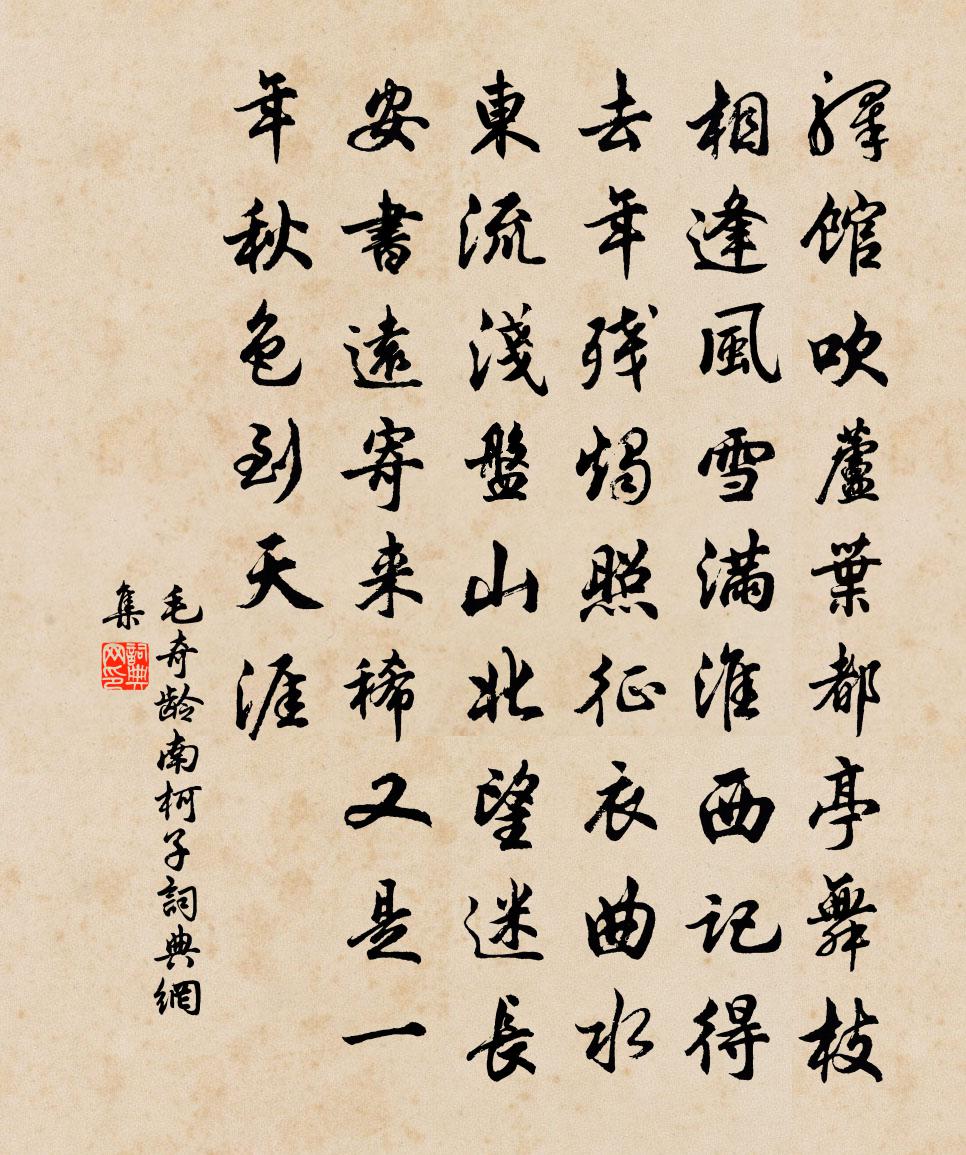 驛館吹蘆葉都亭舞枝
相逢風雪滿淮西記得
去年残燭照征衣曲水
東流淺盤山北望迷長
安書遠寄来稀又是一
年秋色到天涯
毛奇龄南柯子詞典網
集
詞典网印